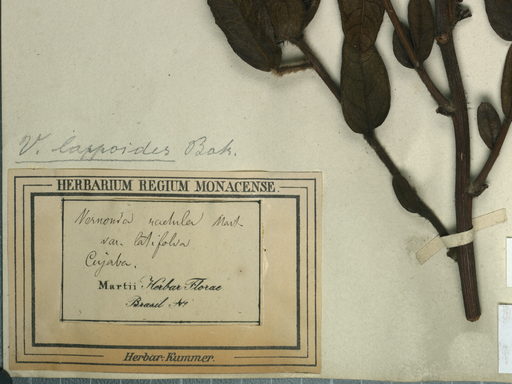 V. lappoides Bak.
HERBARIUM REGIUM MONACENSE.
Vernonia radula Mart
var. latifolia
Cujaba.
Martii Herbar. Florae
Brasil. N°
Herbar. Kummer.